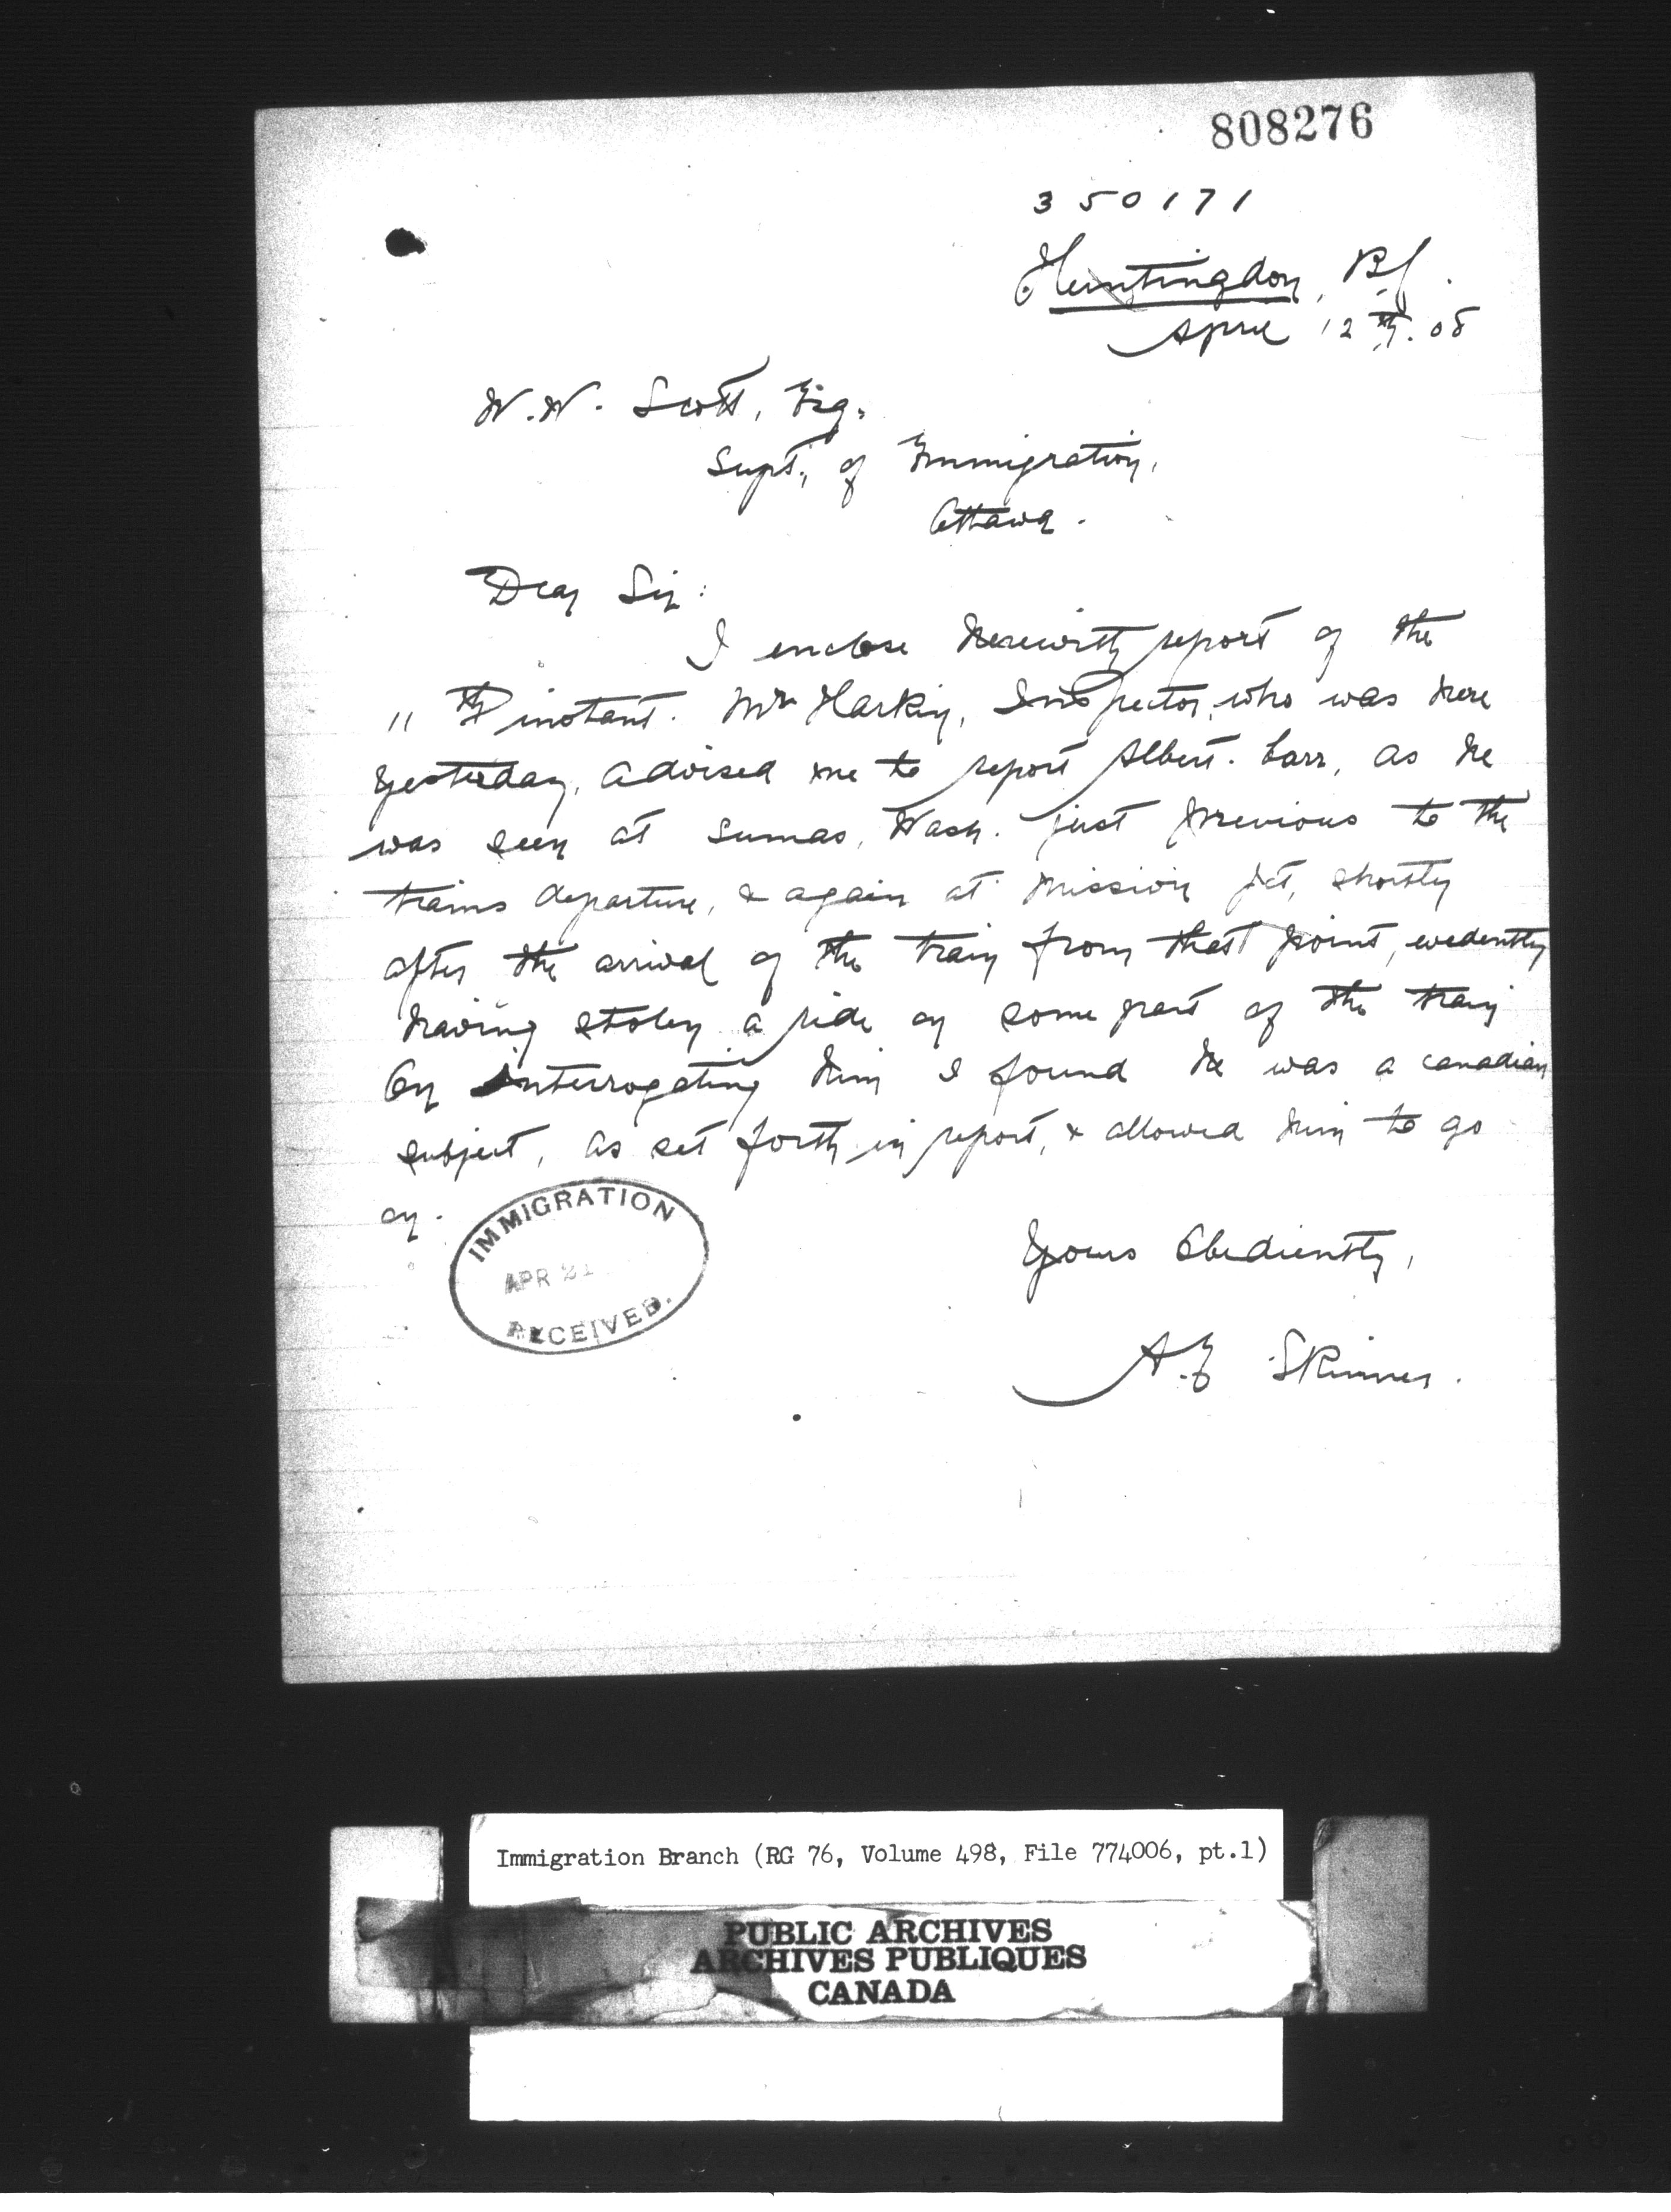 808276
350171
Huntingdon, B.C.
April 12th. 08
W.W. Scott, Esq.
Supt., of Immigration,
Ottawa.
Dear Sir:
I enclose herewith report of the
11th instant. Mr Harkin, Inspector, who was here
yesterday, advised me to report Albert. Carr, as he
was seen at Sumas, Wash. just previous to the
trains departure, & again at Mission Jct, shortly
after the arrival of the train from that point, evedently
having stolen a ride on some part of the train
On interrogating him I found he was a canadian
subject, as set forth in report, & allowed him to go
on.
IMMIGRATION
APR 21
RECEIVED.
Yours Obediently,
A.E Skinner.
Immigration Branch (RG 76, Volume 498, File 774006, pt.1)
PUBLIC ARCHIVES
ARCHIVES PUBLIQUES
CANADA